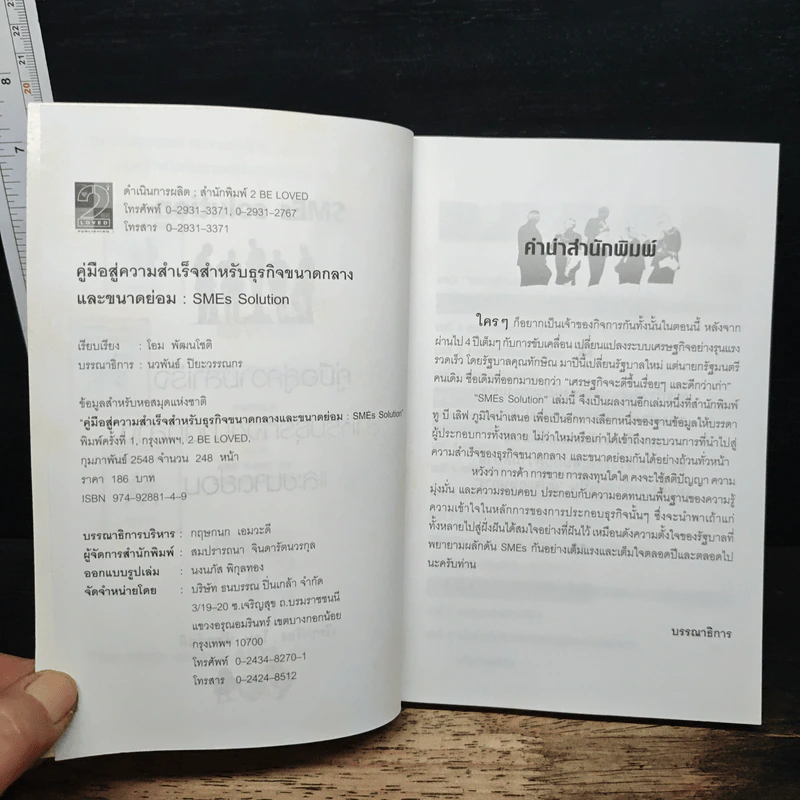 2
LOVED
ดำเนินการผลิต : สำนักพิมพ์ 2 BE LOVED
โทรศัพท์ 0-2931-3371, 0-2931-2767
โทรสาร 0-2931-3371
คู่มือสู่ความสำเร็จสำหรับธุรกิจขนาดกลาง
และขนาดย่อม : SMEs Solution
เรียบเรียง : โอม พัฒนโชติ
บรรณาธิการ : นวพันธ์ ปิยะวรรณกร
ข้อมูลสำหรับหอสมุดแห่งชาติ
"คู่มือสู่ความสำเร็จสำหรับธุรกิจขนาดกลางและขนาดย่อม : SMEs Solution"
พิมพ์ครั้งที่ 1, กรุงเทพฯ, 2 BE LOVED,
กุมภาพันธ์ 2548 จำนวน 248 หน้า
ราคา 186 บาท
ISBN 974-92881-4-9
บรรณาธิการบริหาร : กฤษกนก เอมวะดี
ผู้จัดการสำนักพิมพ์ : สมปรารถนา จินดารัตนวรกุล
ออกแบบรูปเล่ม : นงนภัส พิกุลทอง
จัดจำหน่ายโดย : บริษัท ธนบรรณ ปิ่นเกล้า จำกัด
3/19-20 ซ.เจริญสุข ถ.บรมราชชนนี
แขวงอรุณอมรินทร์ เขตบางกอกน้อย
กรุงเทพฯ 10700
โทรศัพท์ 0-2434-8270-1
โทรสาร 0-2424-8512
คำนำสำนักพิมพ์
ใครๆ ก็อยากเป็นเจ้าของกิจการกันทั้งนั้นในตอนนี้ หลังจาก
ผ่านไป 4 ปีเต็มๆ กับการขับเคลื่อน เปลี่ยนแปลงระบบเศรษฐกิจอย่างรุนแรง
รวดเร็ว โดยรัฐบาลคุณทักษิณ มาปีนี้เปลี่ยนรัฐบาลใหม่ แต่นายกรัฐมนตรี
คนเดิม ชื่อเดิมที่ออกมาบอกว่า "เศรษฐกิจจะดีขึ้นเรื่อยๆ และดีกว่าเก่า"
"SMEs Solution" เล่มนี้ จึงเป็นผลงานอีกเล่มหนึ่งที่สำนักพิมพ์
ทู บี เลิฟ ภูมิใจนำเสนอ เพื่อเป็นอีกทางเลือกหนึ่งของฐานข้อมูลให้บรรดา
ผู้ประกอบการทั้งหลาย ไม่ว่าใหม่หรือเก่าได้เข้าถึงกระบวนการที่นำไปสู่
ความสำเร็จของธุรกิจขนาดกลาง และขนาดย่อมกันได้อย่างถ้วนทั่วหน้า
หวังว่า การค้า การขาย การลงทุนใดใด คงจะใช้สติปัญญา ความ
มุ่งมั่น และความรอบคอบ ประกอบกับความอดทนบนพื้นฐานของความรู้
ความเข้าใจในหลักการของการประกอบธุรกิจนั้นๆ ซึ่งจะนำพาเถ้าแก่
ทั้งหลายไปสู่ฝั่งฝันได้สมใจอย่างที่ฝันไว้ เหมือนดังความตั้งใจของรัฐบาลที่
พยายามผลักดัน SMEs กันอย่างเต็มแรงและเต็มใจตลอดปีและตลอดไป
นะครับท่าน
บรรณาธิการ